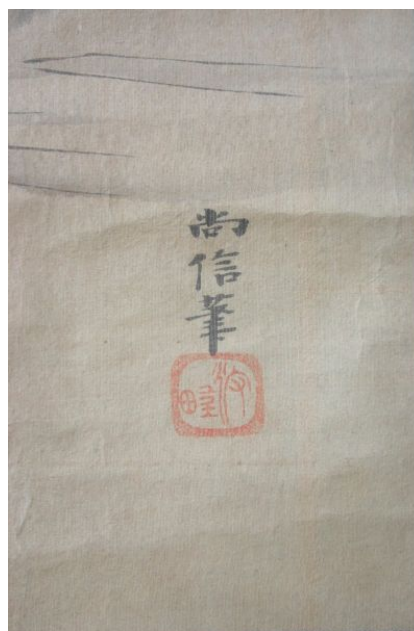 尚信筆